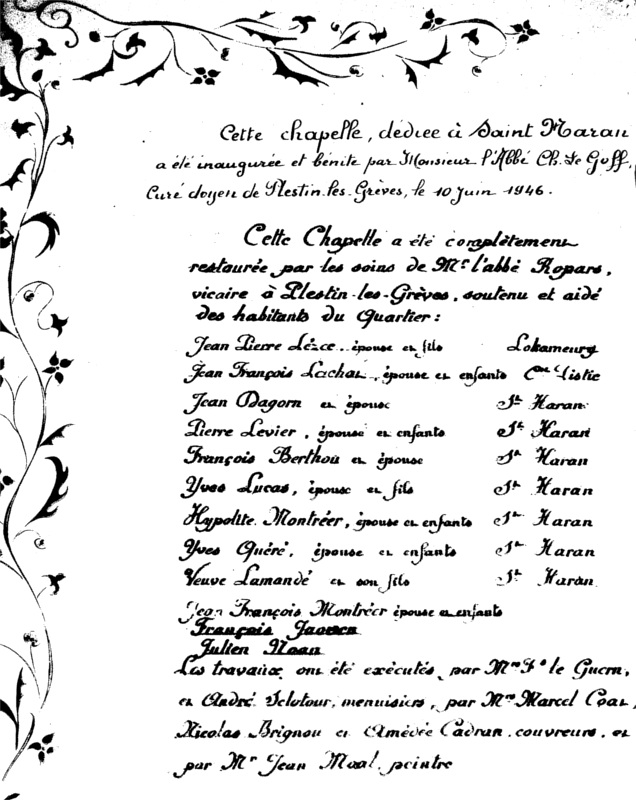 Cette chapelle, dédiée à Saint Haran
a été inaugurée et bénite par Monsieur l'Abbé Ch. Le Goff,
Curé doyen de Plestin-les-Grèves, le 10 Juin 1946.
Cette Chapelle a été complètement
restaurée par les soins de Mr l'abbé Ropars,
vicaire à Plestin-les-Grèves, soutenu et aidé
des habitants du Quartier :
Jean Pierre Lézec, épouse et fils Lokameury
Jean François Lachat, épouse et enfants
Jean Dagorn et épouse St Haran
Pierre Levier, épouse et enfants St Haran
François Berthou et épouse St Haran
Yves Lucas, épouse et fils St Haran
Hypolite Montréer, épouse et enfants St Haran
Yves Quéré, épouse et enfants St Haran
Veuve Lamandé et son fils St Haran
Jean François Montréer épouse et enfants
François Jaouen
Julien Noan
Les travaux ont été exécutés, par Mrs Fs le Guern,
et André Sclotour, menuisiers, par Mrs Marcel Coat,
Nicolas Brignou et Amédée Cadran, couvreurs, et
par Mr Jean Maal, peintre